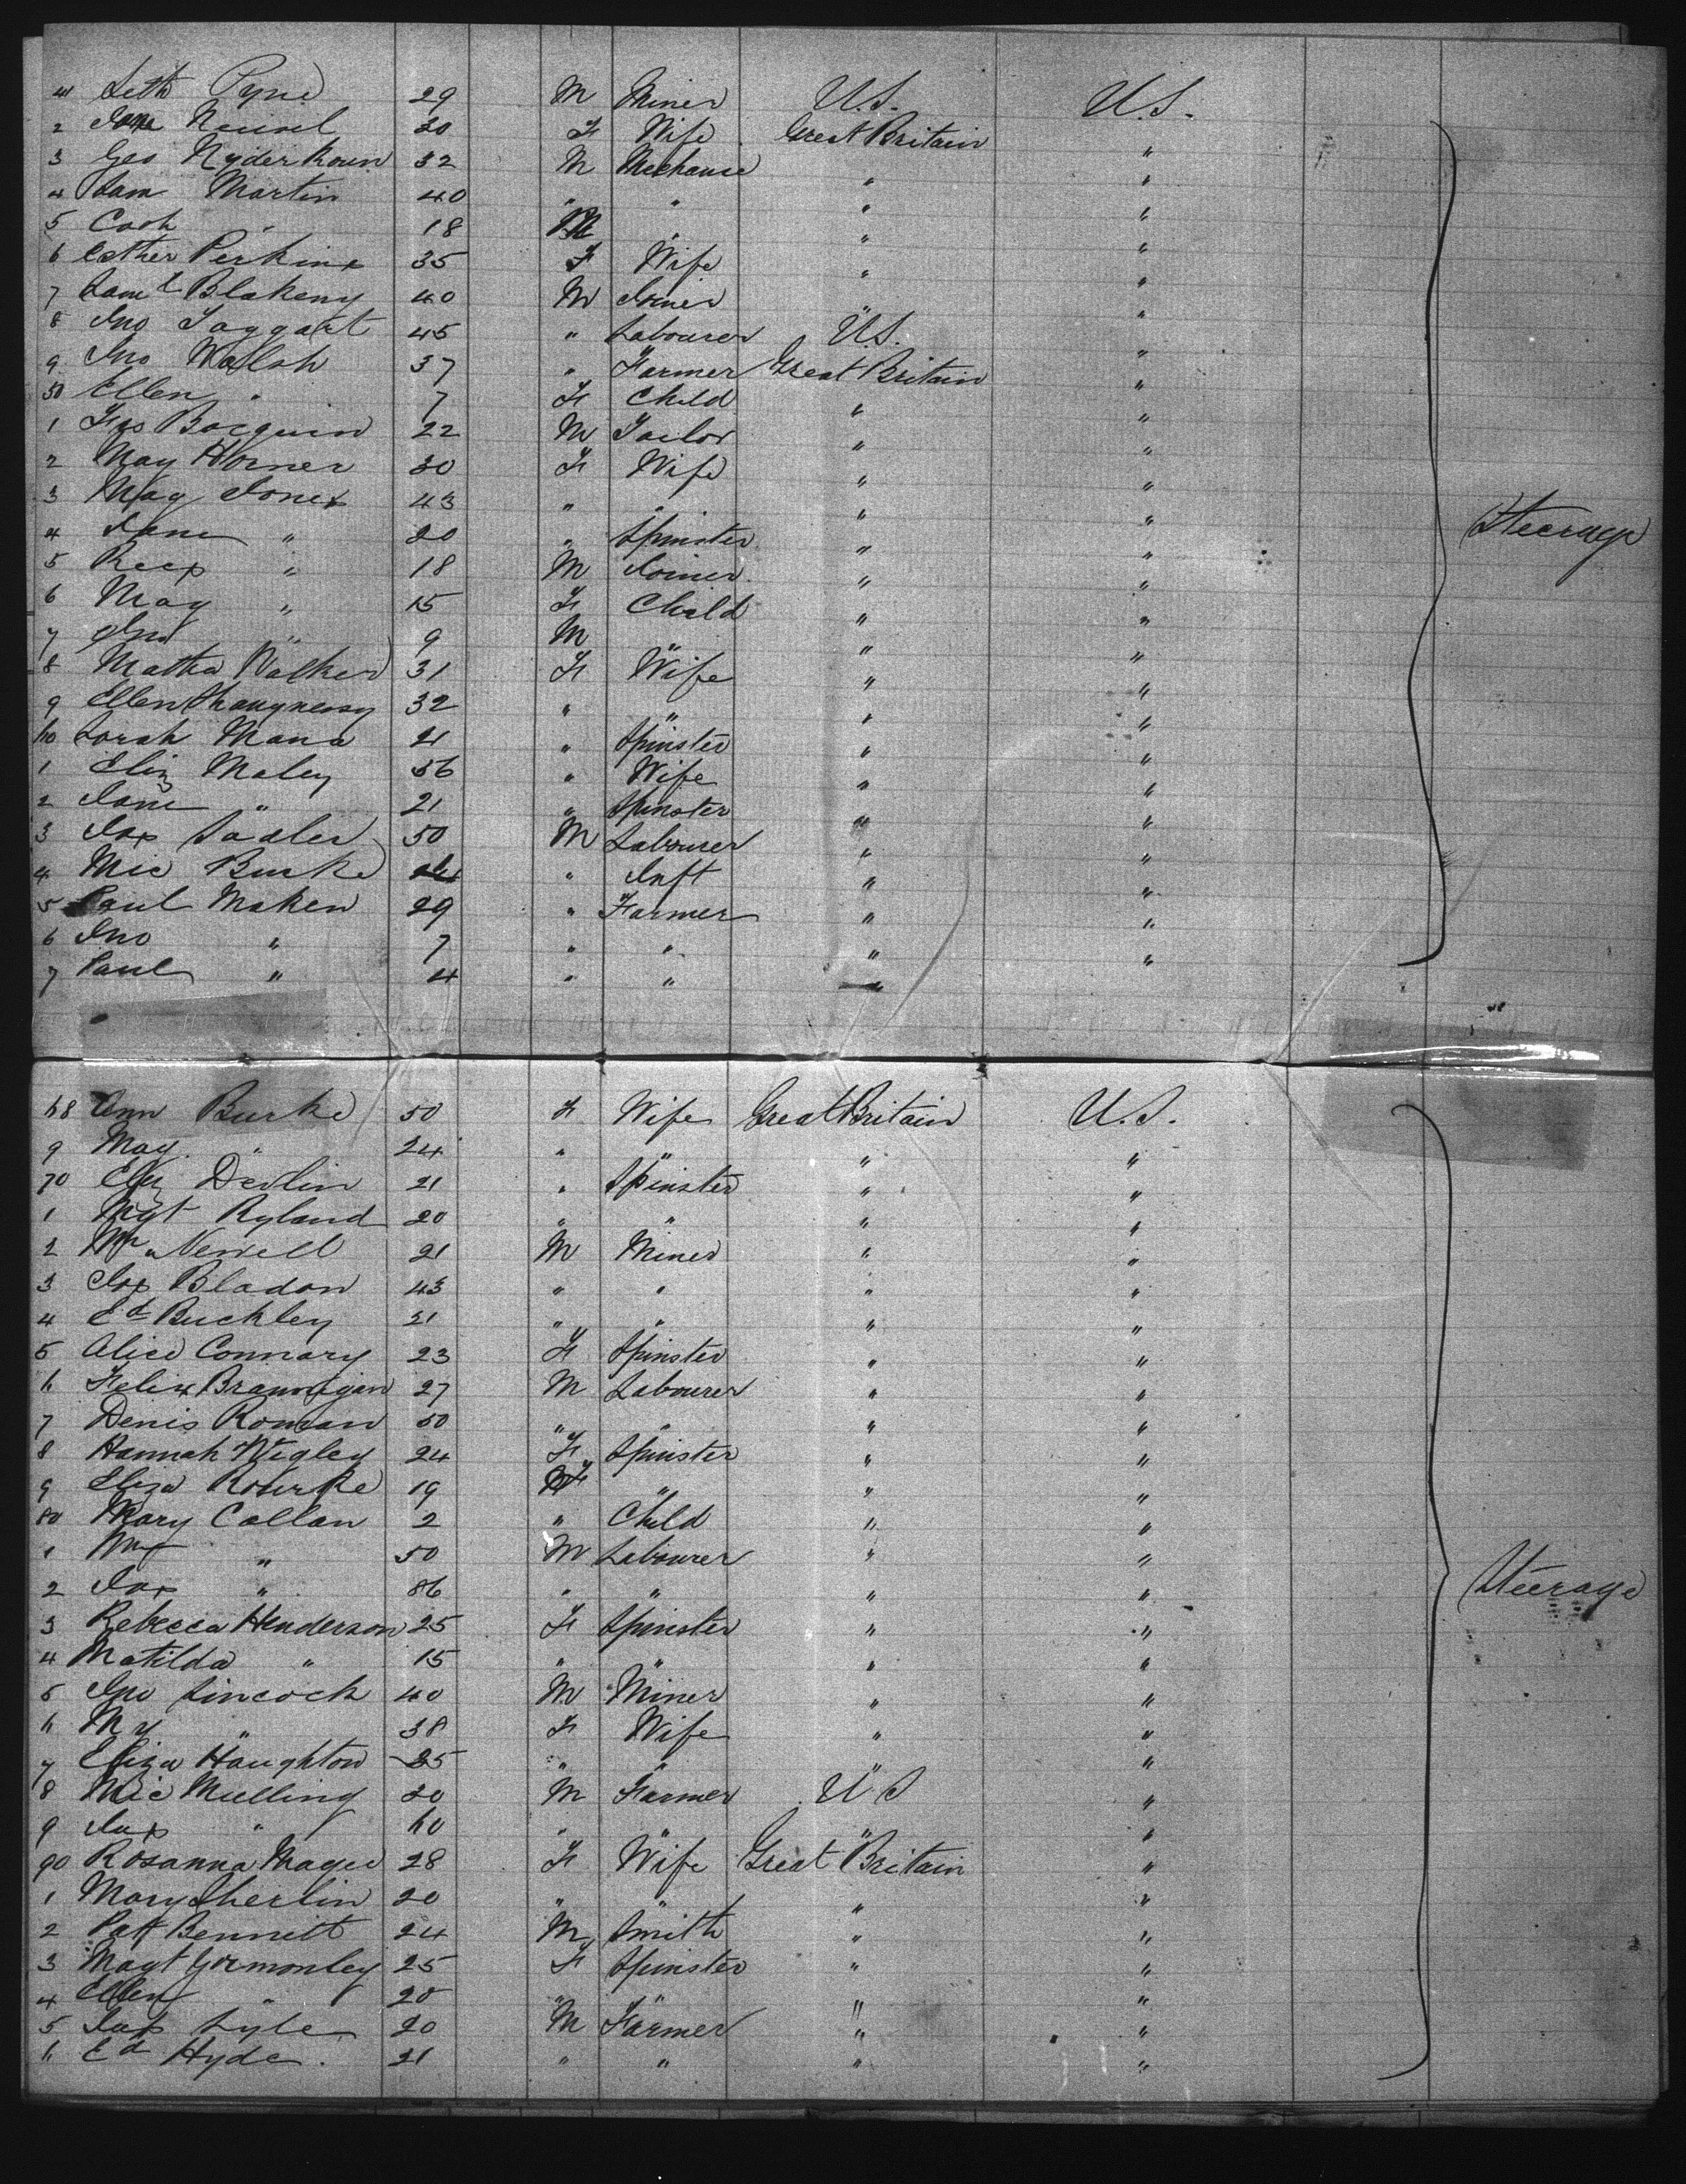 41 Seth Pyne 29 M Miner U.S. U.S.
2 Jane 30 F Wife Great Britain "
3 Geo 32 M Mechanic " "
4 Sam Martin 40 " " " "
5 Cath " 18 " " "
6 Esther Perkins 35 F Wife " "
7 Saml Blakeny 40 M Joiner " "
8 Jno Taggart 45 " Labourer U.S. "
9 Jno Walsh 37 " Farmer Great Britain "
50 Ellen " 7 F Child " "
1 Jas 22 M Tailor " "
2 May Horner 30 F Wife " "
3 Mag Jones 43 " " " "
4 Jane " 20 " Spinster " "
5 Rees " 18 M Joiner " "
6 Mag " 15 F Child " "
7 Jno " 9 M " " "
8 Matha Walker 31 F Wife " "
9 Ellen Shaugnessy 32 " " " "
60 Sarah Mana 21 " Spinster " "
1 Eliz Maley 56 " Wife " "
2 Jane " 21 " Spinster " "
3 Jas Sadler 50 M Labourer " "
4 Mic Burke " Inft " "
5 Paul Maken 29 " Farmer " "
6 Jno " 7 " " " "
7 Paul " 4 " " " "
Steerage
68 Ann Burke 50 F Wife Great Britain U.S.
9 May " 24 " " " "
70 Eliz Devlin 21 " Spinster " "
1 Mgt Ryland 20 " " " "
2 Wm Newell 21 M Miner " "
3 Jas Bladon 43 " " " "
4 Ed Buckley 21 " " " "
5 Alice Connary 23 F Spinster " "
6 Felix Brannigan 27 M Labourer " "
7 Denis Ronan 50 " " " "
8 Hannah Wigley 24 F Spinster " "
9 Eliza Rourke 19 F " " "
80 Mary Callan 2 " Child " "
1 " 50 M Labourer " "
2 Jas " 86 " " " "
3 Rebecca Henderson 25 F Spinster " "
4 Matilda " 15 " " " "
5 Jno Lincock 40 M Miner " "
6 My " 38 F Wife " "
7 Eliza Haughton 25 " " " "
8 Mic Mulling 20 M Farmer U S "
9 Jas " 60 " " " "
90 Rosanna Magee 28 F Wife Great Britain "
1 Mary Sherlin 20 " " " "
2 Pat Bennett 24 M Smith " "
3 Magt Gormonley 25 F Spinster " "
4 Ellen " 20 " " " "
5 Jas Lyle 20 M Farmer " "
6 Ed Hyde. 21 " " " "
Steerage